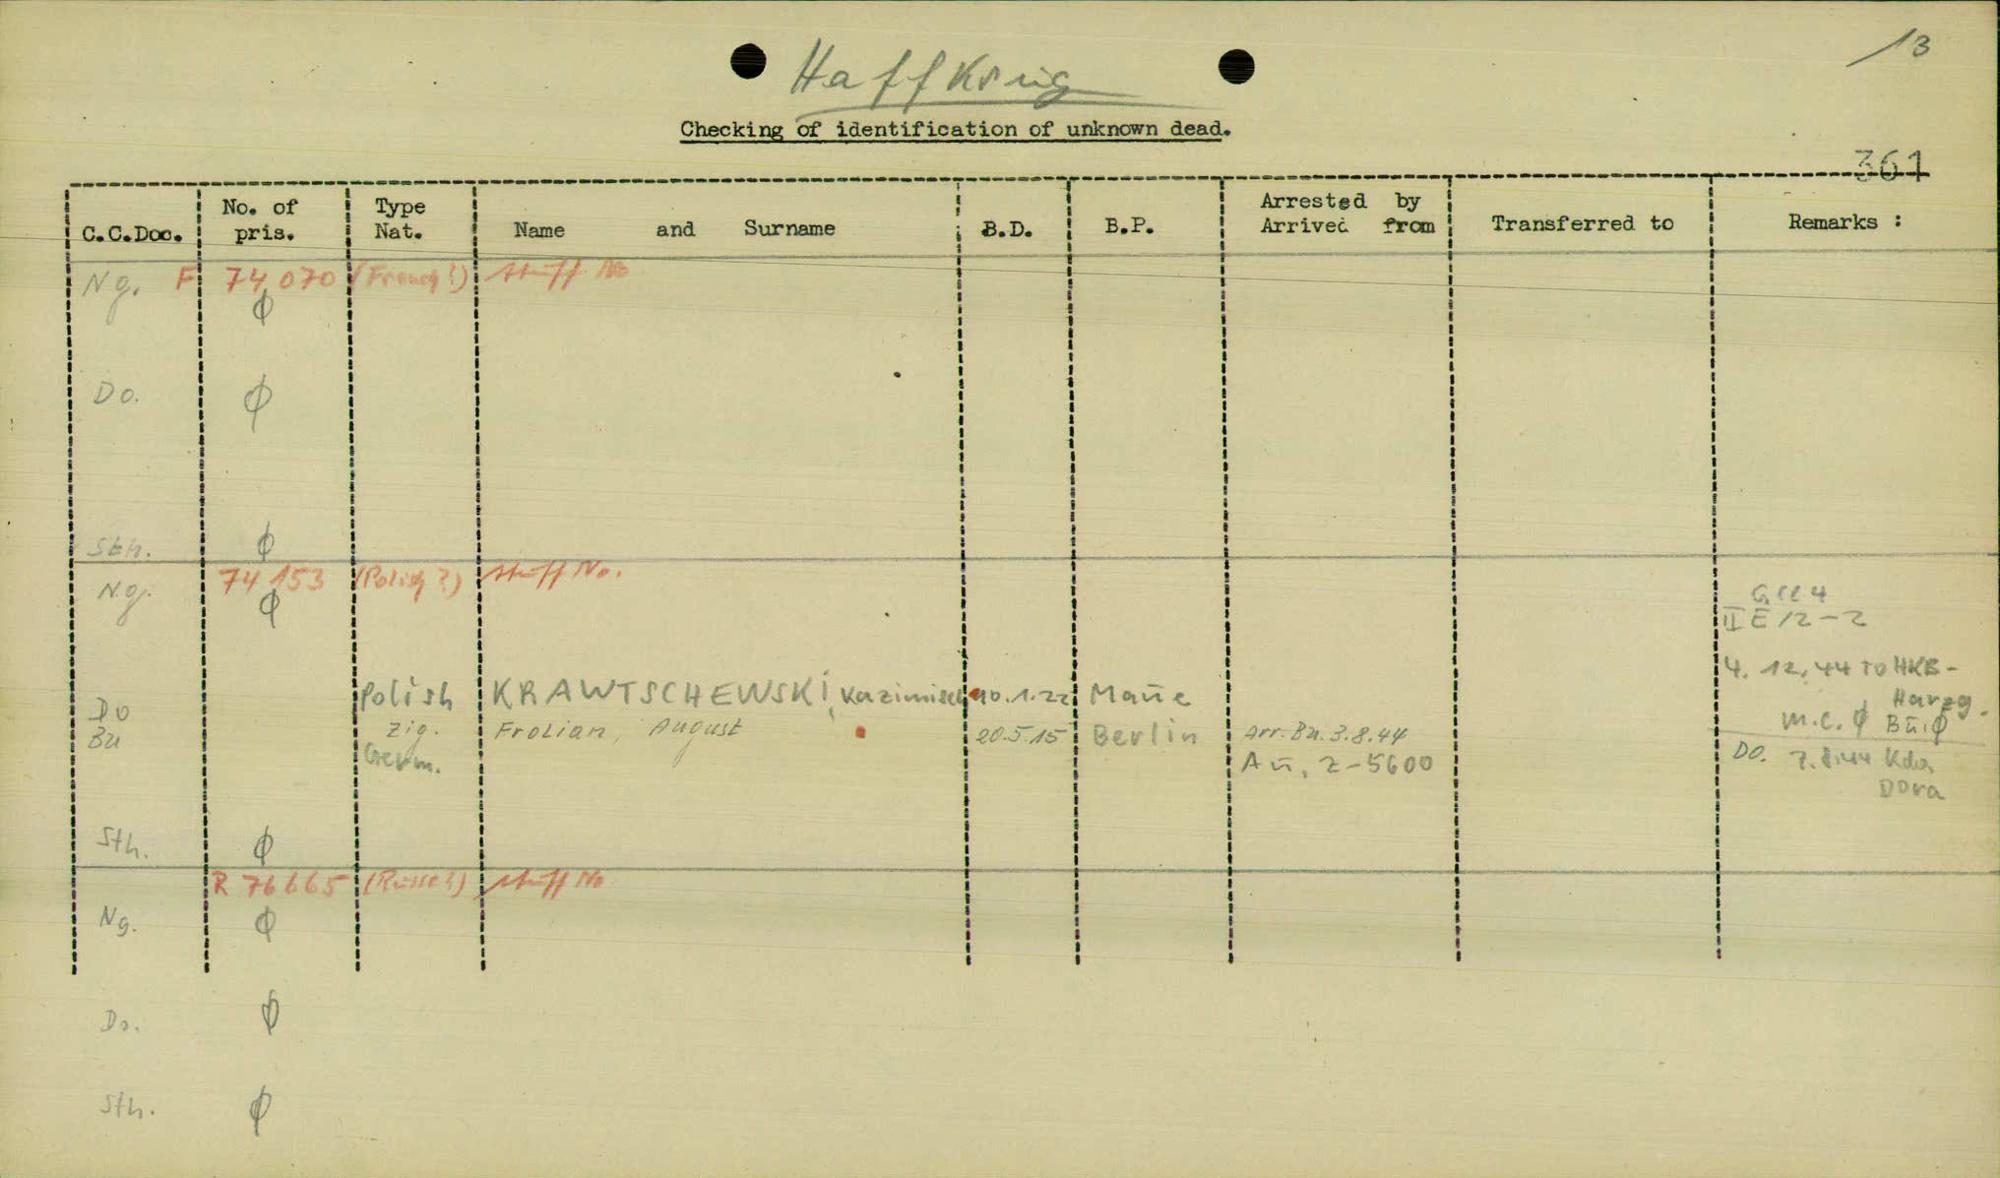 13
Haffkrug
Checking of identification of unknown dead.
361
C.C.Doc. No. of pris. Type Nat. Name and Surname B.D. B.P. Arrested by Arrived from Transferred to Remarks :
Ng. F 74 070 (French?) Stuff No
Ø
Do. Ø
Sth. Ø
74 153 (Polish?) Stuff No.
Ng. Ø
GCC 4
II E/2-2
4. 12. 44 to HKB-
Harzg.
Do Polish KRAWTSCHEWSKI, Kazimisch 10.1.22
m.c. Ø Bu.Ø
Bu Zig. Frolian, August 20.5.15 Berlin Arr. Bu. 3.8.44
Germ. Au, Z-5600
Do. 7.8.44 Kdo
Dora
Sth. Ø
R 76665 (Russ?) Stuff No
Ng. Ø
Do. Ø
Sth. Ø